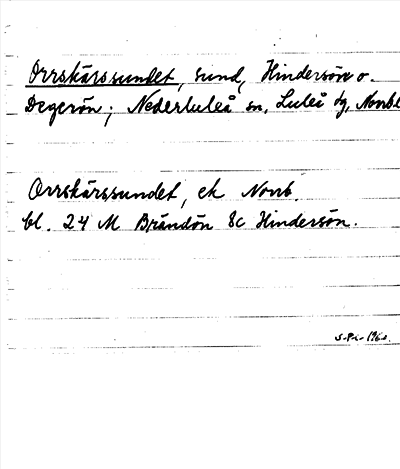 Orrskärssundet, sund, Hindersön o.
Degerön; Nederluleå sn, Luleå tg, Norrb
Orrskärssundet, ek Norrb.
bl. 24 M Brändön 8c Hindersön.